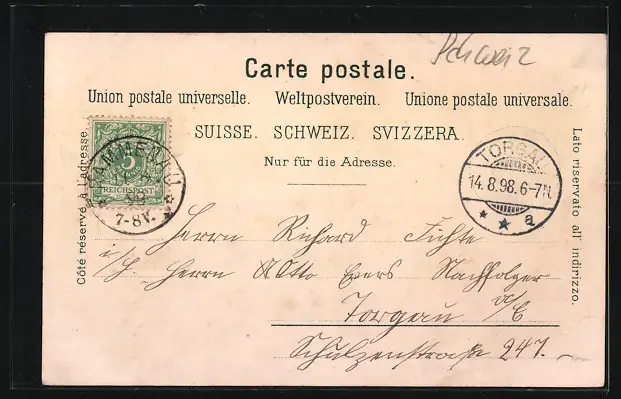 Schweiz
Carte postale.
Union postale universelle. Weltpostverein. Unione postale universale.
SUISSE. SCHWEIZ. SVIZZERA.
Nur für die Adresse.
Côté réservé à l'adresse.
Lato riservato all' indirizzo.
5
REICHSPOST
7-8V.
TORGAU
14.8.98.6-7N.
a
Herrn Richard Fichte
Herrn Otto Evers Nachfolger
Torgau a/E
Schulzenstraße 247.